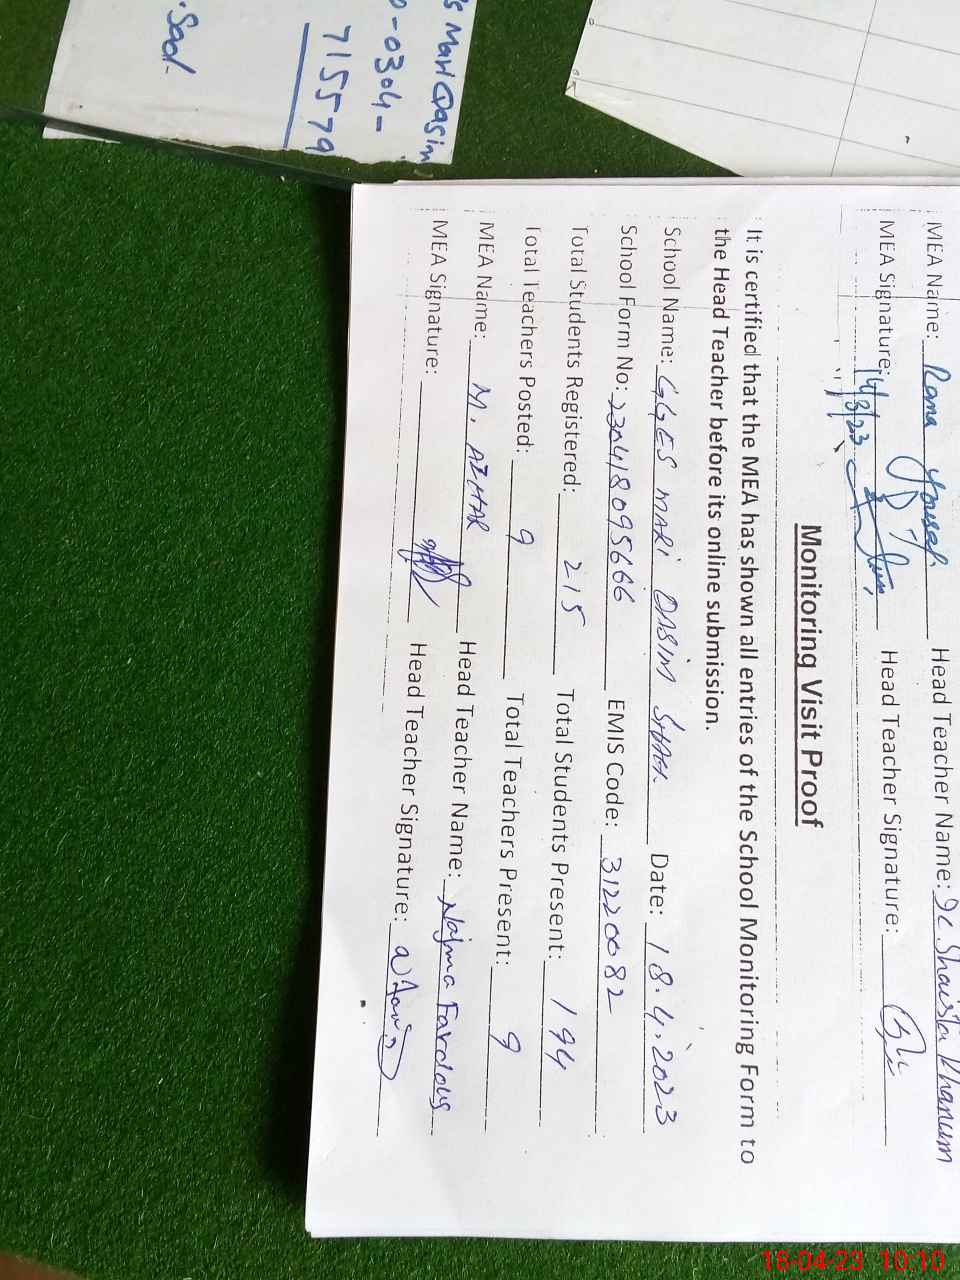 s Mari Qasim
0-0304-
715579
.Saad.
MEA Name: Rana Yousaf Head Teacher Name: Shaista Khanum
MEA Signature: 14/3/23 Head Teacher Signature:
Monitoring Visit Proof
It is certified that the MEA has shown all entries of the School Monitoring Form to
the Head Teacher before its online submission.
School Name: GGES MARI QASIM SHAH Date: 18.4.2023
School Form No: 230418095666 EMIS Code: 31220082
Total Students Registered: 215 Total Students Present: 194
Total Teachers Posted: 9 Total Teachers Present: 9
MEA Name: M. AZHAR Head Teacher Name: Najma Fardous
MEA Signature: Head Teacher Signature:
18-04-23 10:10